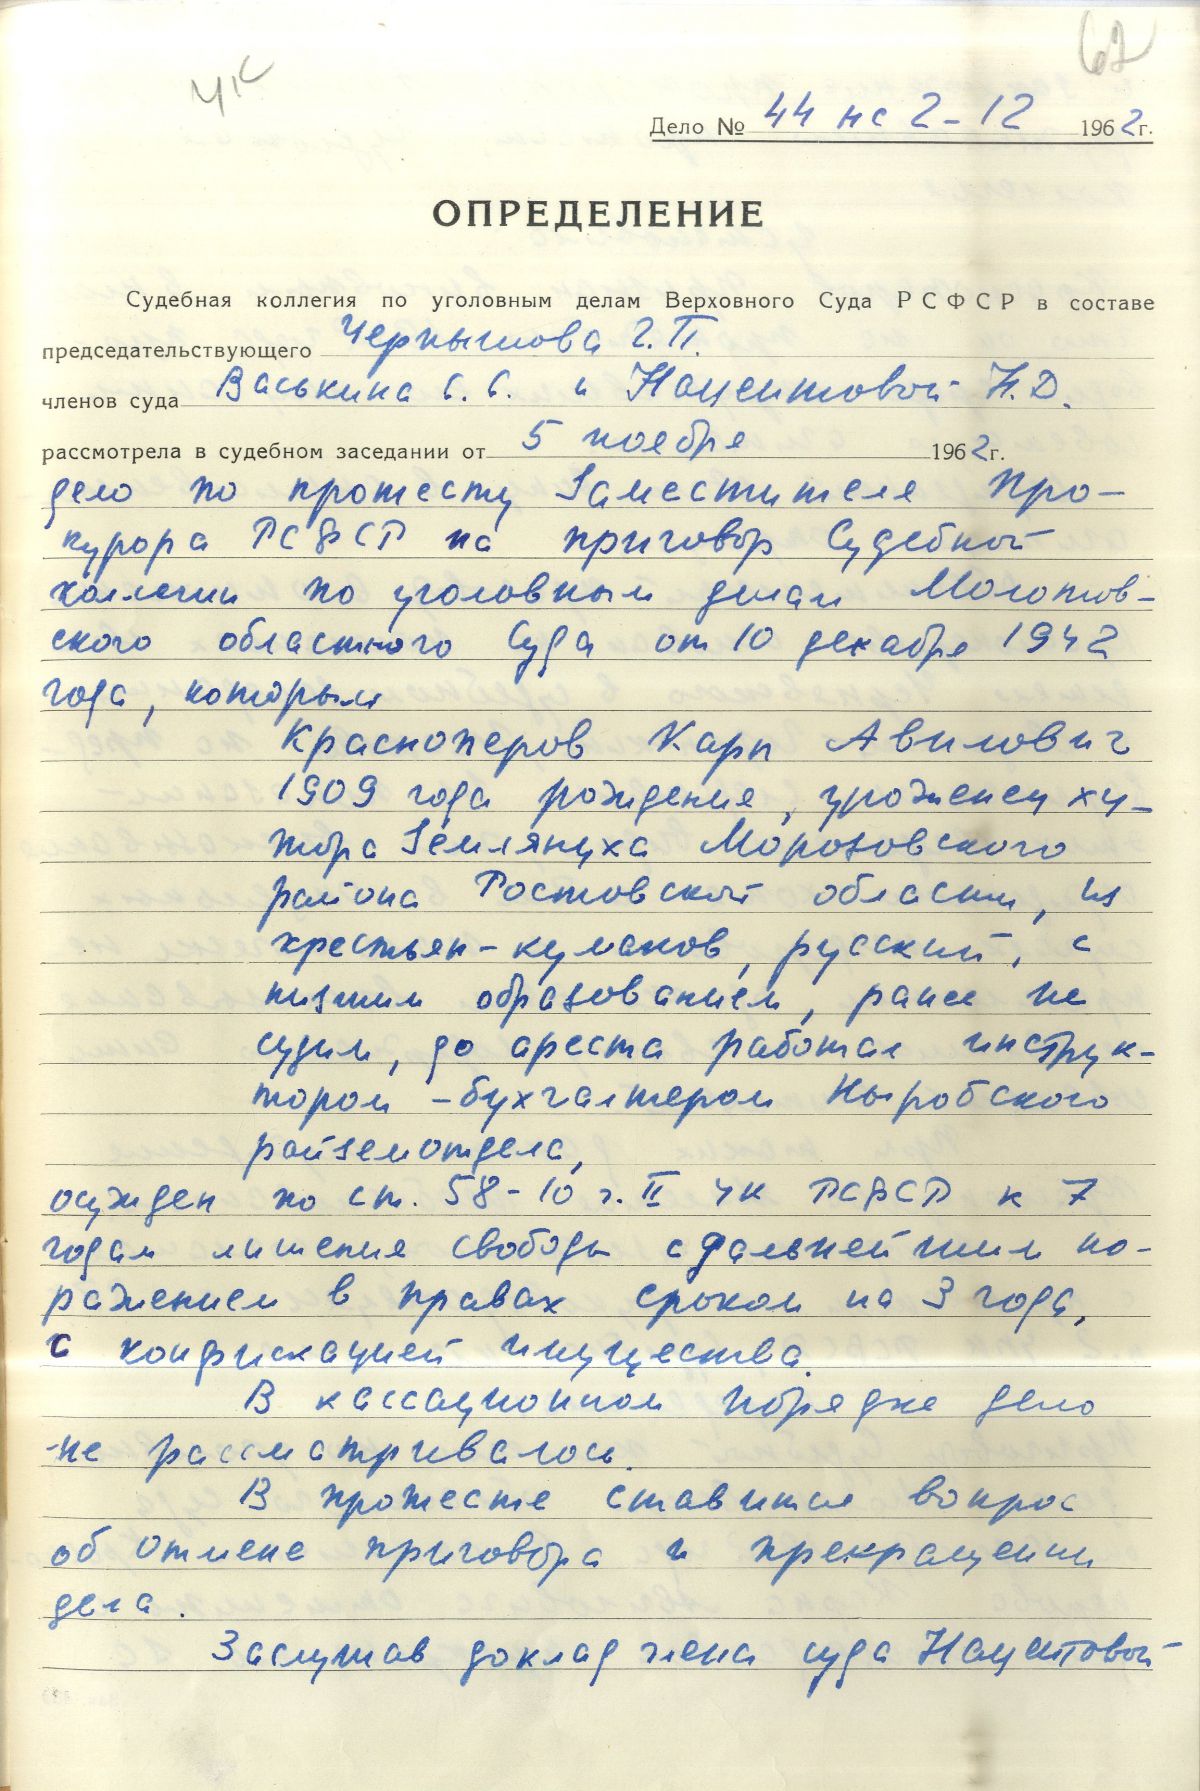 62
УК
Дело № 44 нс 2-12 1962 г.
ОПРЕДЕЛЕНИЕ
Судебная коллегия по уголовным делам Верховного Суда РСФСР в составе
председательствующего Чернышова Г.П.
членов суда Васькина Б.Б. и Н.Д.
рассмотрела в судебном заседании от 5 ноября 1962 г.
дело по протесту Заместителя Про-
курора РСФСР на приговор Судебной
коллегии по уголовным делам Молотов-
ского областного Суда от 10 декабря 1942
года, которым
Красноперов Карп Авилович
1909 года рождения, уроженец ху-
тора Землянуха Морозовского
района Ростовской области, из
крестьян-кулаков, русский, с
низшим образованием, ранее не
судим, до ареста работал инструк-
тором-бухгалтером Ныробского
райземотдела,
осужден по ст. 58-10 ч. II УК РСФСР к 7
годам лишения свободы с дальнейшим по-
ражением в правах сроком на 3 года,
с конфискацией имущества.
В кассационном порядке дело
не рассматривалось.
В протесте ставится вопрос
об отмене приговора и прекращении
дела.
Заслушав доклад члена суда